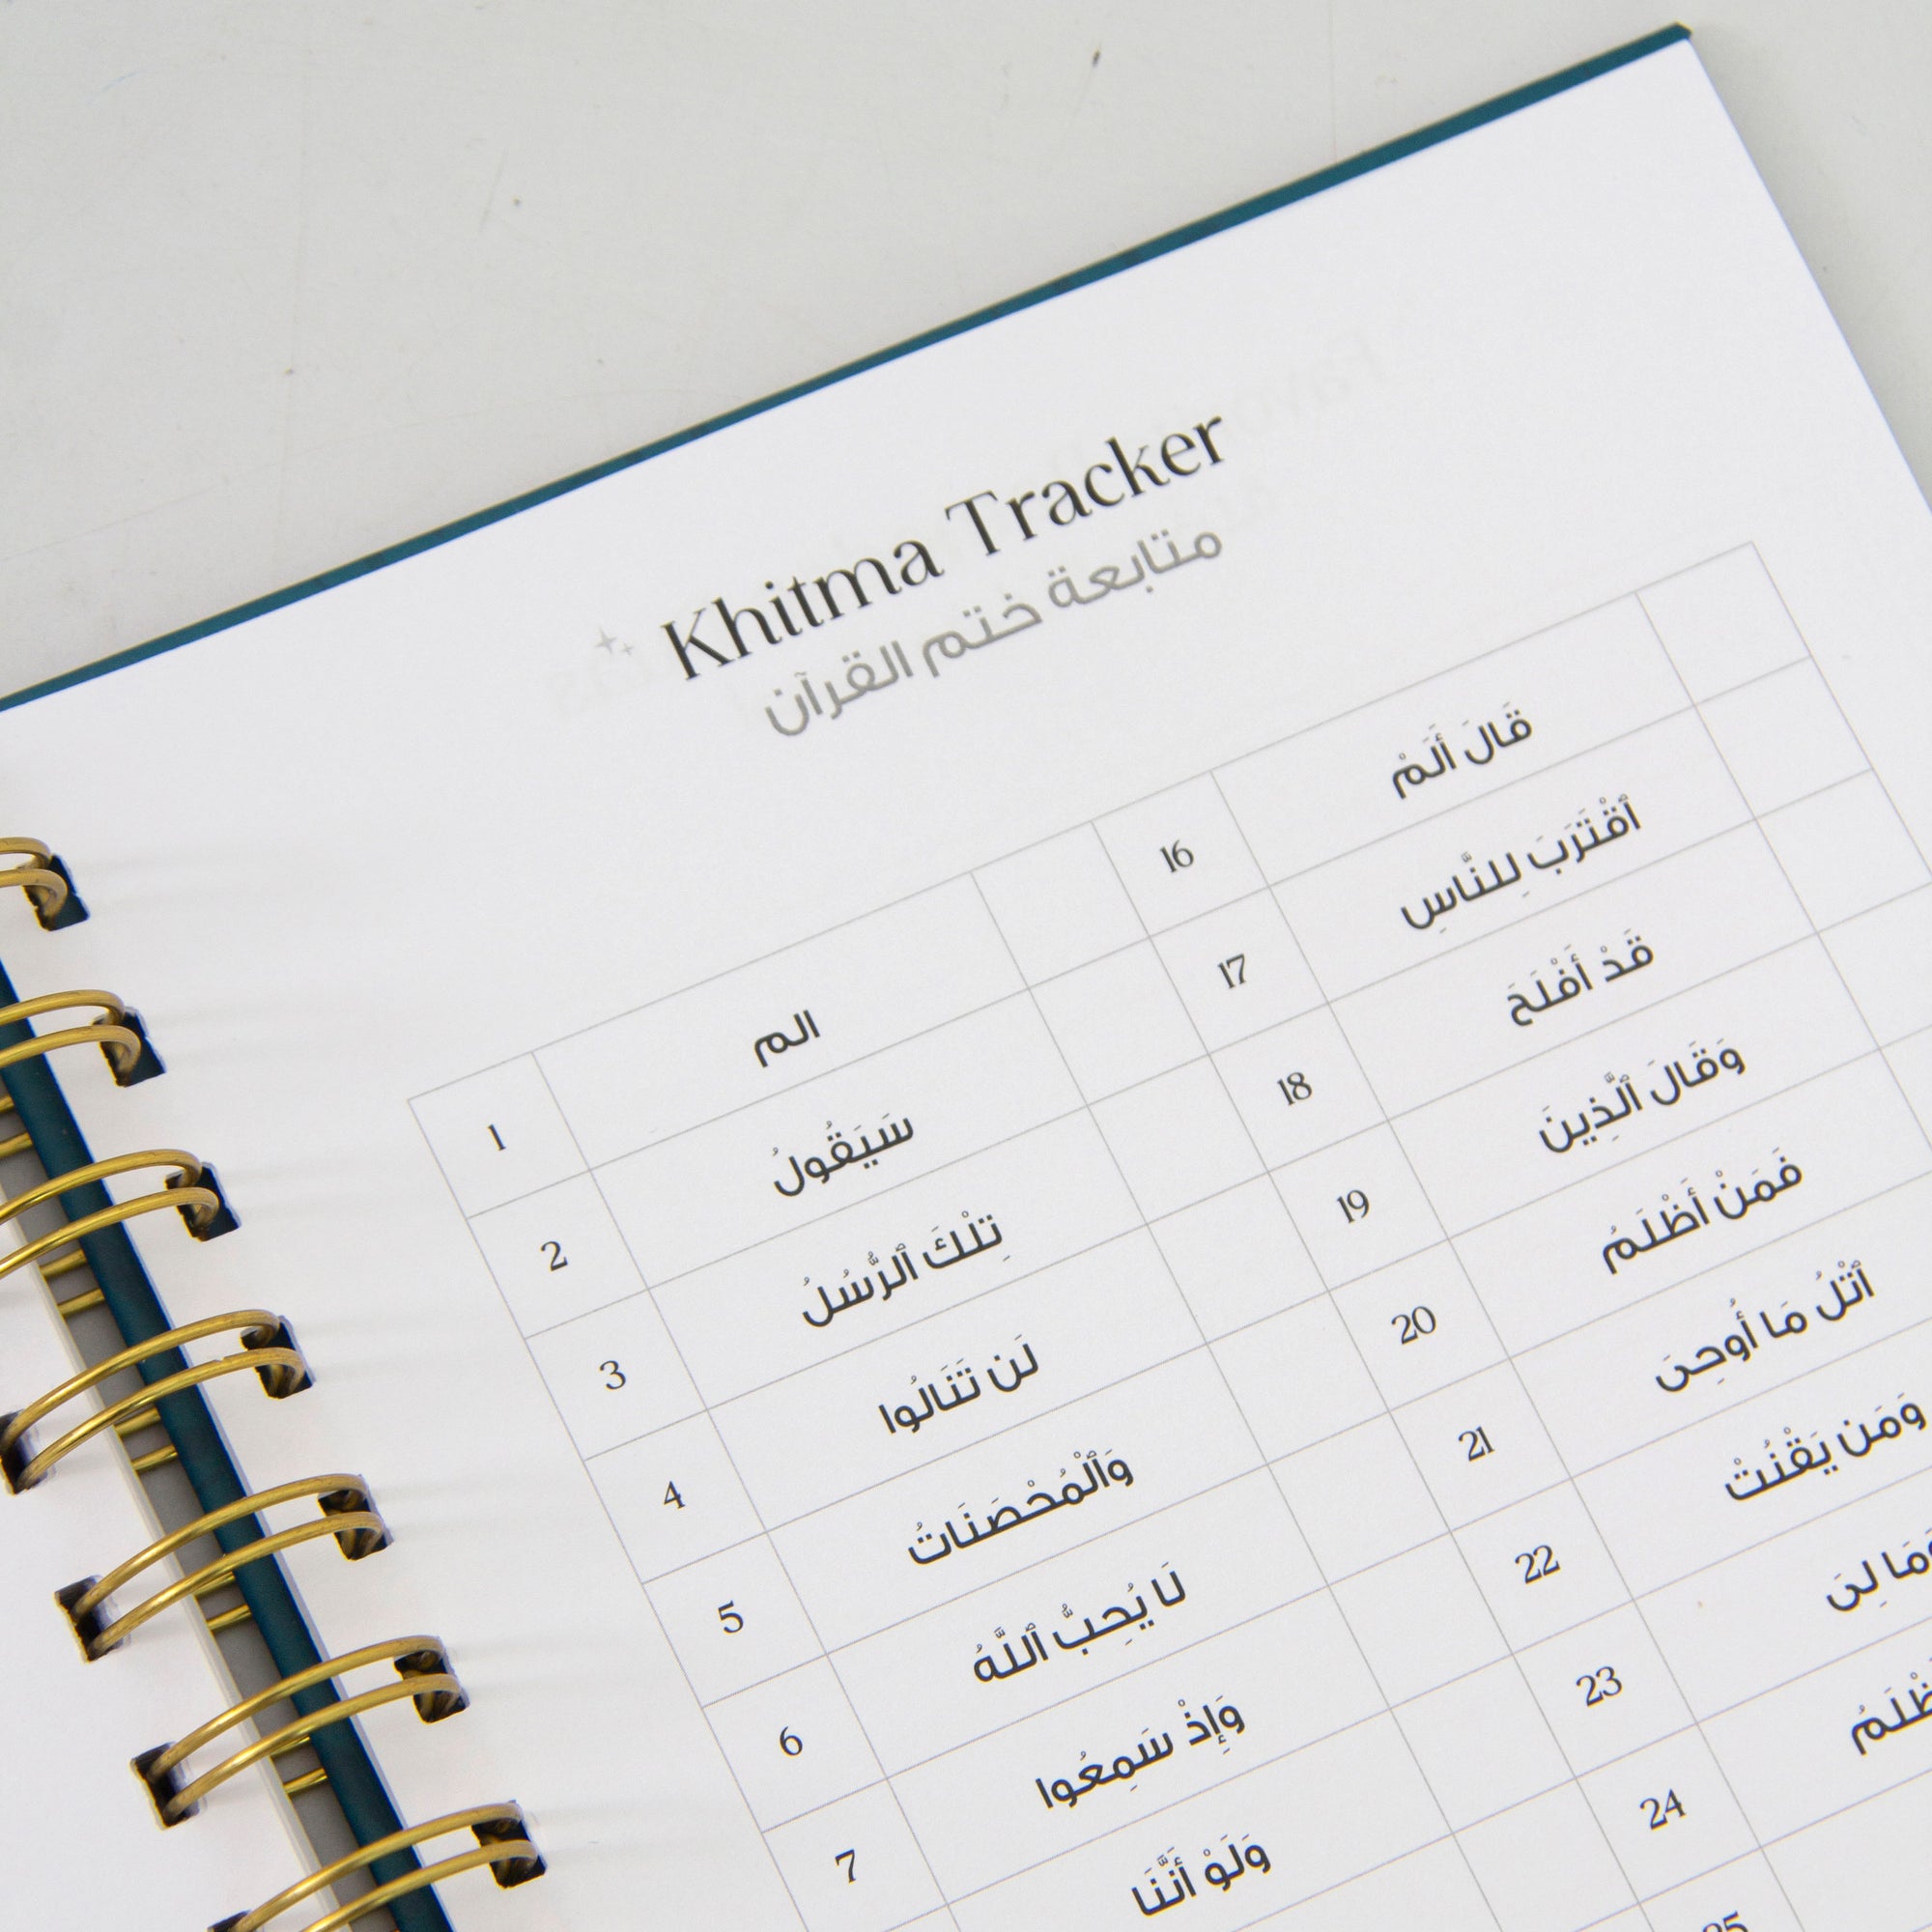 Khitma Tracker
متابعة ختم القرآن
1 الم
2 سَيَقُولُ
3 تِلْكَ ٱلرُّسُلُ
4 لَن تَنَالُوا
5 وَٱلْمُحْصَنَاتُ
6 لَا يُحِبُّ ٱللَّهُ
7 وَإِذْ سَمِعُوا
وَلَوْ أَنَّنَا
16 قَالَ أَلَمْ
17 ٱقْتَرَبَ لِلنَّاسِ
18 قَدْ أَفْلَحَ
19 وَقَالَ ٱلَّذِينَ
20 فَمَنْ أَظْلَمُ
21 ٱتْلُ مَا أُوحِىَ
22 وَمَن يَقْنُتْ
23 وَمَا لِىَ
24 أَظْلَمُ
25